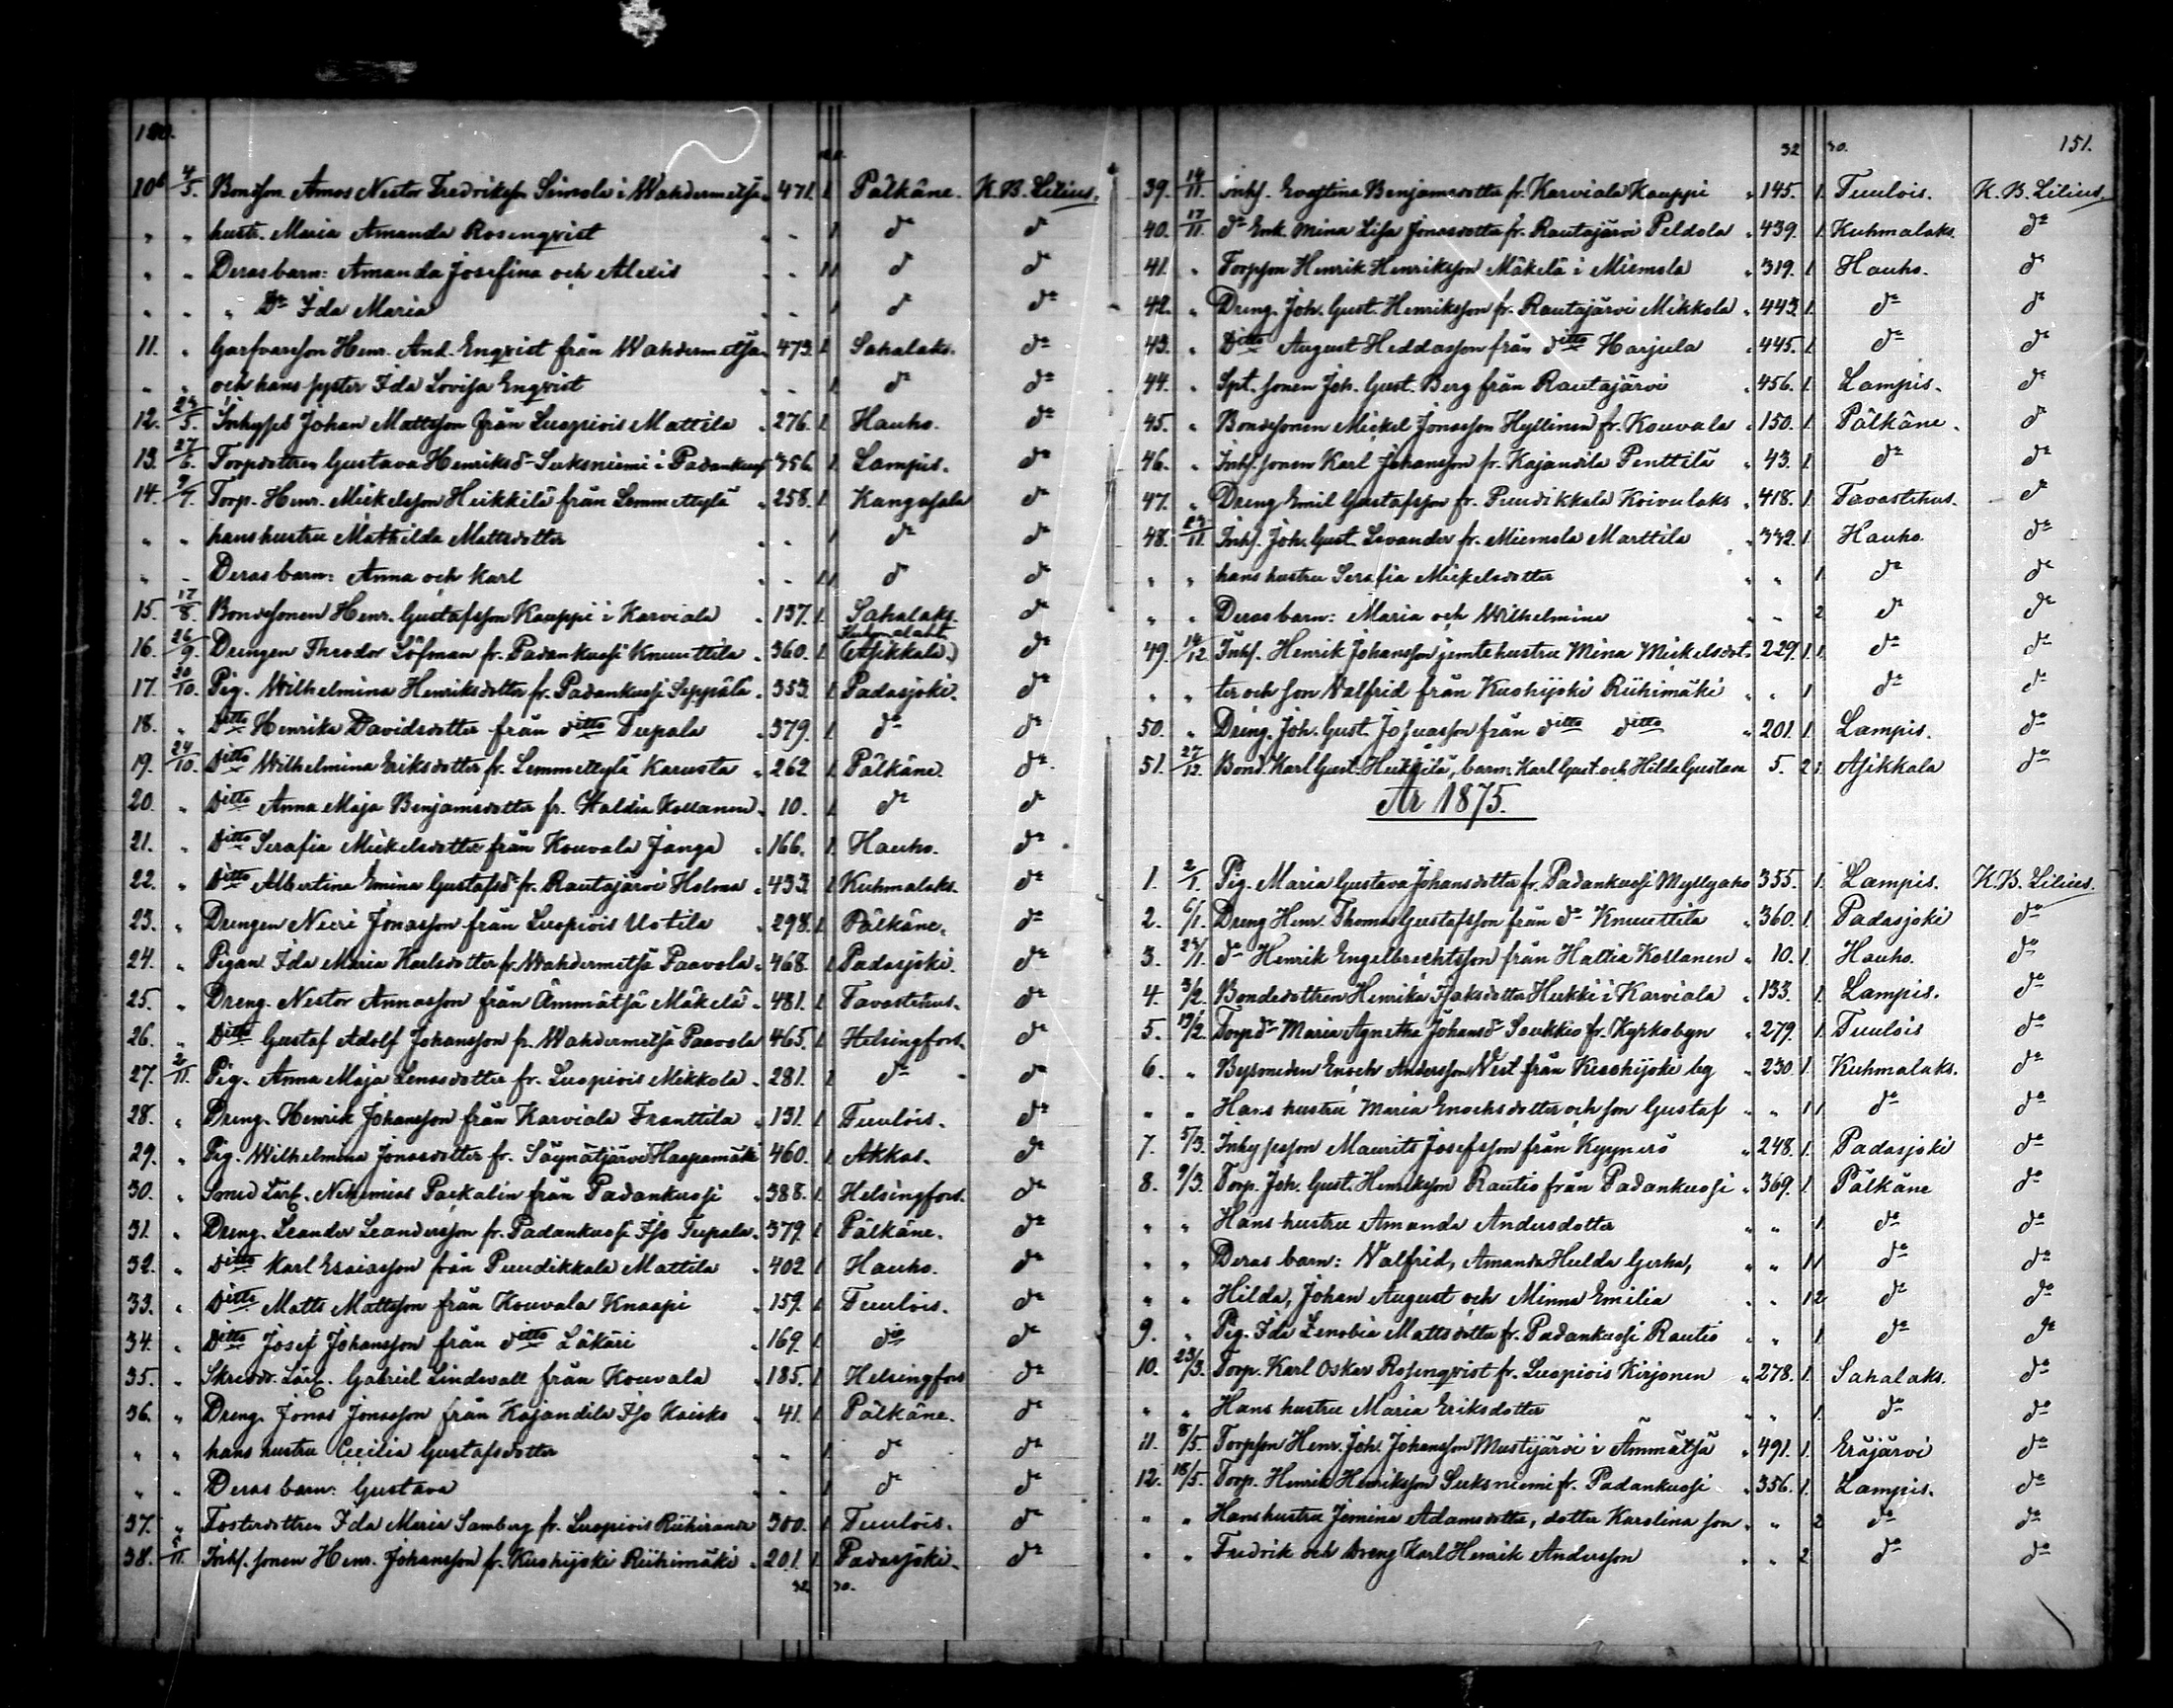 10b 4/5. Bondson Amos Nestor Fredriksson Simola i Wahdermetsä 471. 1 Pälkäne. K. B. Lilius.
" " hustr. Maria Amanda Rosenqvist " - 1 do do
" " Deras barn: Amanda Josefina och Alexis " - 1 1 do do
" " " Do Ida Maria " - 1 do do
11. " Garfvarson Henr. And. Enqvist från Wahdermetsä 473. 1. Sahalaks. do
" " och hans syster Ida Lovisa Enqvist " - 1. do do
12. /5. Inhyses Johan Mattsson från Luopiois Mattila " 276. 1. Hauho. do
13. 27/6. Torpdottren Gustava Henriksdr Suksniemi i Padankuos 356. 1. Lampis. do
14. 9/7. Torp. Henr. Mickelsson Heikkilä från Lemmettylä " 258. 1. Kangasala do
" " hans hustru Mathilda Mattsdotter " - 1 do do
" - Deras barn: Anna och Karl " - 1 1 do do
15. 17/8. Bondesonen Henr. Gustafsson Kauppi i Karviala " 137. 1. Sahalaks. do
16. 26/9. Drengen Theodor Löfman fr. Padankuosi Knuuttila " 360. 1. Kuhmalaht. (Asikkala.) do
17. 20/10. Pig. Wilhelmina Henriksdotter fr. Padankuosi Seppälä " 353. 1. Padasjoki. do
18. " Ditto Henrika Davidsdotter från ditto Tupala " 379. 1. do do
19. 24/10. Ditto Wilhelmina Eriksdotter fr. Lemmettylä Karusta " 262 1. Pälkäne. do
20. " Ditto Anna Maja Benjamsdotter fr. Haltia Kollanen " 10. 1. do do
21. " Ditto Serafia Mickelsdotter från Kouvala Janga " 166. 1. Hauho. do
22. " Ditto Albertina Emina Gustafsdr fr. Rautajärvi Holma " 433. 1 Kuhmalaks. do
23. " Drengen Jonasson från Luopiois Uotila " 298. 1 Pälkäne. do
24. " Pigan Ida Maria Karlsdotter fr. Wahdermetsä Paavola " 468. 1 Padasjoki. do
25. " Dreng. Nestor Annasson från Ämmätsä Mäkelä " 481. 1 Tavastehus. do
26. " Ditto Gustaf Adolf Johansson fr. Wahdermetsä Paavola 465. 1 Helsingfors. do
27. 2/11. Pig. Anna Maja Lenasdotter fr. Luopiois Mikkola " 281. 1 do do
28. " Dreng. Henrik Johansson från Karviala Franttila " 131. 1 Tuulois. do
29. " Pig. Wilhelmina Jonasdotter fr. Säynätjärvi Haapamäki 460. 1 Akkas. do
30. " Smed Lärl. Nehemias Paekalin från Padankuosi " 388. 1. Helsingfors. do
31. " Dreng. Leander Leandersson fr. Padankuosi Iso Tupala " 379. 1 Pälkäne. do
32. " Ditto Karl Esaiasson från Puudikkala Mattila " 402 1 Hauho. do
33. " Ditto Matts Mattsson från Kouvala Knaapi " 159. 1. Tuulois. do
34. " Ditto Josef Johansson från ditto Läkäri " 169. 1 do do
35. " Skredd. Lärl. Gabriel Lindevall från Kouvala " 185. 1 Helsingfors do
36. " Dreng. Jonas Jonasson från Kajandila Iso Kaisko " 41. 1. Pälkäne. do
" " hans hustru Cecilia Gustafsdotter " " 1. do do
" " Deras barn: Gustava " " 1 do do
37. " Fosterdottren Ida Maria Samberg fr. Luopiois Riihiranda 300. 1. Tuulois. do
38. 5/11. Inhs. sonen Henr. Johansson fr. Kuohijoki Riihimäki " 201. 1. Padasjoki. do
32 30.
32 30. 151.
39. 14/11. Inhs. Evastina Benjamsdotter fr. Karviala Kauppi " 145. 1. Tuulois. K. B. Lilius.
40. 17/11. do Enk. Mina Lisa Jonasdotter fr. Rautajärvi Peldola " 439. 1. Kuhmalaks. do
41. " Torpson Henrik Henriksson Mäkelä i Miemola " 319. 1. Hauho. do
42. " Dreng. Joh. Gust. Henriksson fr. Rautajärvi Mikkola " 443. 1. do do
43. " Ditto August Heddasson från ditto Harjula " 445. 1 do do
44. " Spt. sonen Joh. Gust. Berg från Rautajärvi " 456. 1. Lampis. do
45. " Bondesonen Mickel Jonasson Hyllinen fr. Kouvala " 150. 1. Pälkäne. do
46. " Inhs. sonen Karl Johansson fr. Kajandila Penttilä " 43. 1. do do
47. " Dreng Emil Gustafsson fr. Puudikkala Koivulaks " 418. 1. Tavastehus. do
48. 23/11. Inhs. Joh. Gust. Levander fr. Miemola Marttila " 332. 1. Hauho. do
" " hans hustru Serafia Mickelsdotter " " 1. do do
" " Deras barn: Maria och Wilhelmina " " 2 do do
49. 14/12. Inhs. Henrik Johansson jemte hustru Mina Mickelsdot- 229. 1. 1. do do
" " ter och son Valfrid från Kuohijoki Riihimäki " " 1 do do
50. " Dreng. Joh. Gust. Josuasson från ditto ditto " 201. 1. Lampis. do
51. 27/12. Bond. Karl Gust. Heikkilä, barn: Karl Gust. och Hilda Gustava 5. 2 1. Asikkala do
År 1875.
1. 2/1. Pig. Maria Gustava Johansdotter fr. Padankuosi Myllyaho 355. 1. Lampis. K. B. Lilius.
2. 6/1. Dreng Henr. Thomas Gustafsson från do Knuuttila " 360. 1. Padasjoki do
3. 23/1. do Henrik Engelbrechtsson från Haltia Kollanen " 10. 1. Hauho. do
4. 3/2. Bondedottren Henrika Isaksdotter Heikki i Karviala " 133. 1. Lampis. do
5. 13/2. Torpdr Maria Agnetha Johansdr Saukkio fr. Kyrkobyn " 279. 1. Tuulois do
6. " Bysmeden Enoch Andersson Vest från Kuohijoki by " 230. 1. Kuhmalaks. do
" " Hans hustru Maria Enochsdotter och son Gustaf " " 1 1. do do
7. 5/3. Inhysesson Maurits Josefsson från Kyynerö " 248. 1. Padasjoki do
8. 9/3. Torp. Joh. Gust. Henriksson Rautio från Padankuosi " 369. 1. Pälkäne do
" " Hans hustru Amanda Andersdotter " " 1. do do
" " Deras barn: Valfrid, Amanda Hulda Gerha, " " 1 1 do do
" " Hilda, Johan August och Minna Emilia " " 1 2 do do
9. " Pig. Ida Zenobia Mattsdotter fr. Padankuosi Rautio " " 1. do do
10. 23/3. Torp. Karl Oskar Rosenqvist fr. Luopiois Kirjonen " 278. 1. Sahalaks. do
" " Hans hustru Maria Eriksdotter " " 1. do do
11. 8/5. Torpson Henr. Joh. Johansson Mustijärvi i Ämmätsä " 491. 1. Eräjärvi do
12. 18/5. Torp. Henrik Henriksson Suksniemi fr. Padankuosi " 356. 1. Lampis. do
" " Hans hustru Jemina Adamsdotter, dotter Karolina son " " 2 do do
" " Fredrik och Dreng Karl Henrik Andersson " " 2. do do